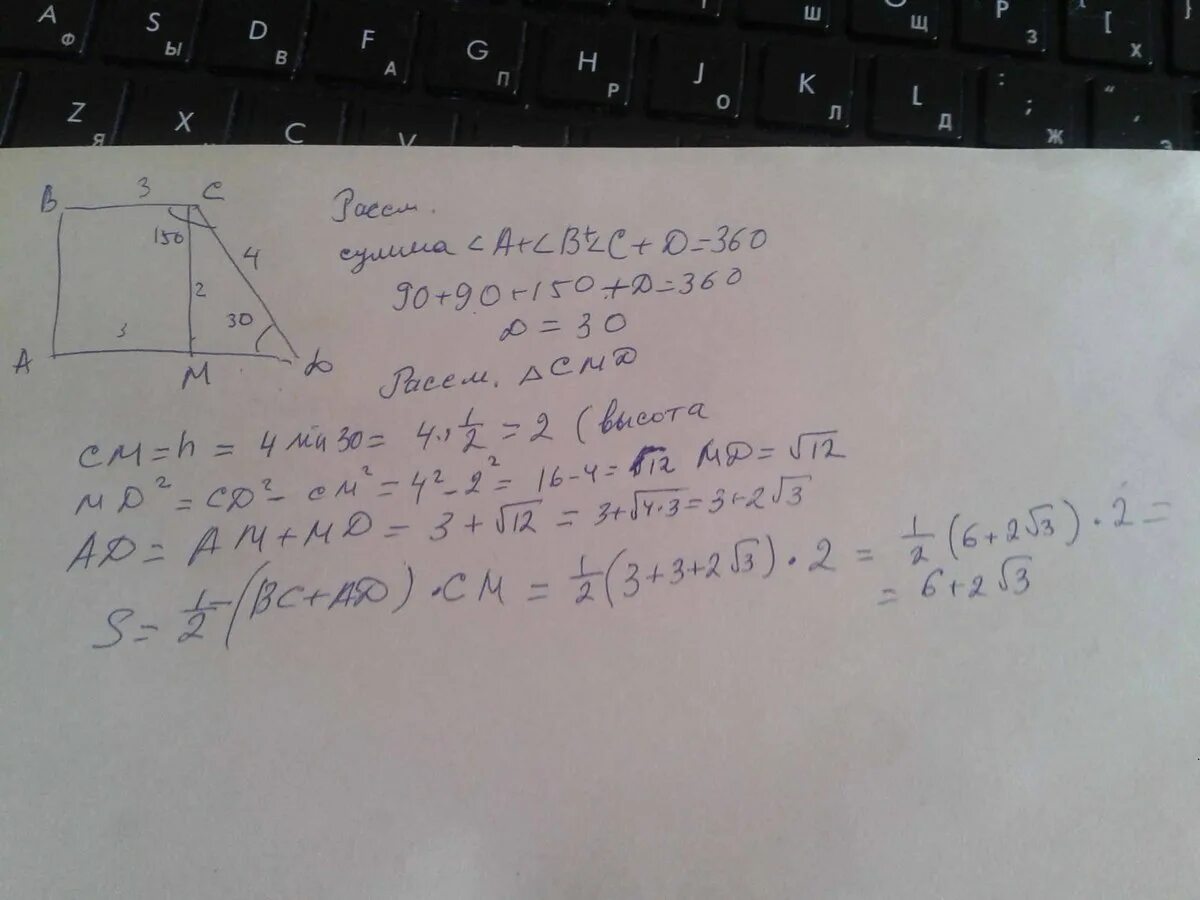 A Ф S Ы D В F А G П H Р J О K Л L Д : ; Ж " ' Э
Ш Щ P З [ Х
Z Я X C V
B 3 C
150 4
2
30
A 3 M D
Рассм.
сумма <A+<B+<C+D=360
90+90+150+D=360
D=30
Рассм. △CMD
CM=h=4 sin 30=4·1/2=2 (высота
MD²=CD²-CM²=4²-2²=16-4=√12 MD=√12
AD=AM+MD=3+√12=3+√4·3=3+2√3
S=1/2(BC+AD)·CM=1/2(3+3+2√3)·2=1/2(6+2√3)·2=
=6+2√3